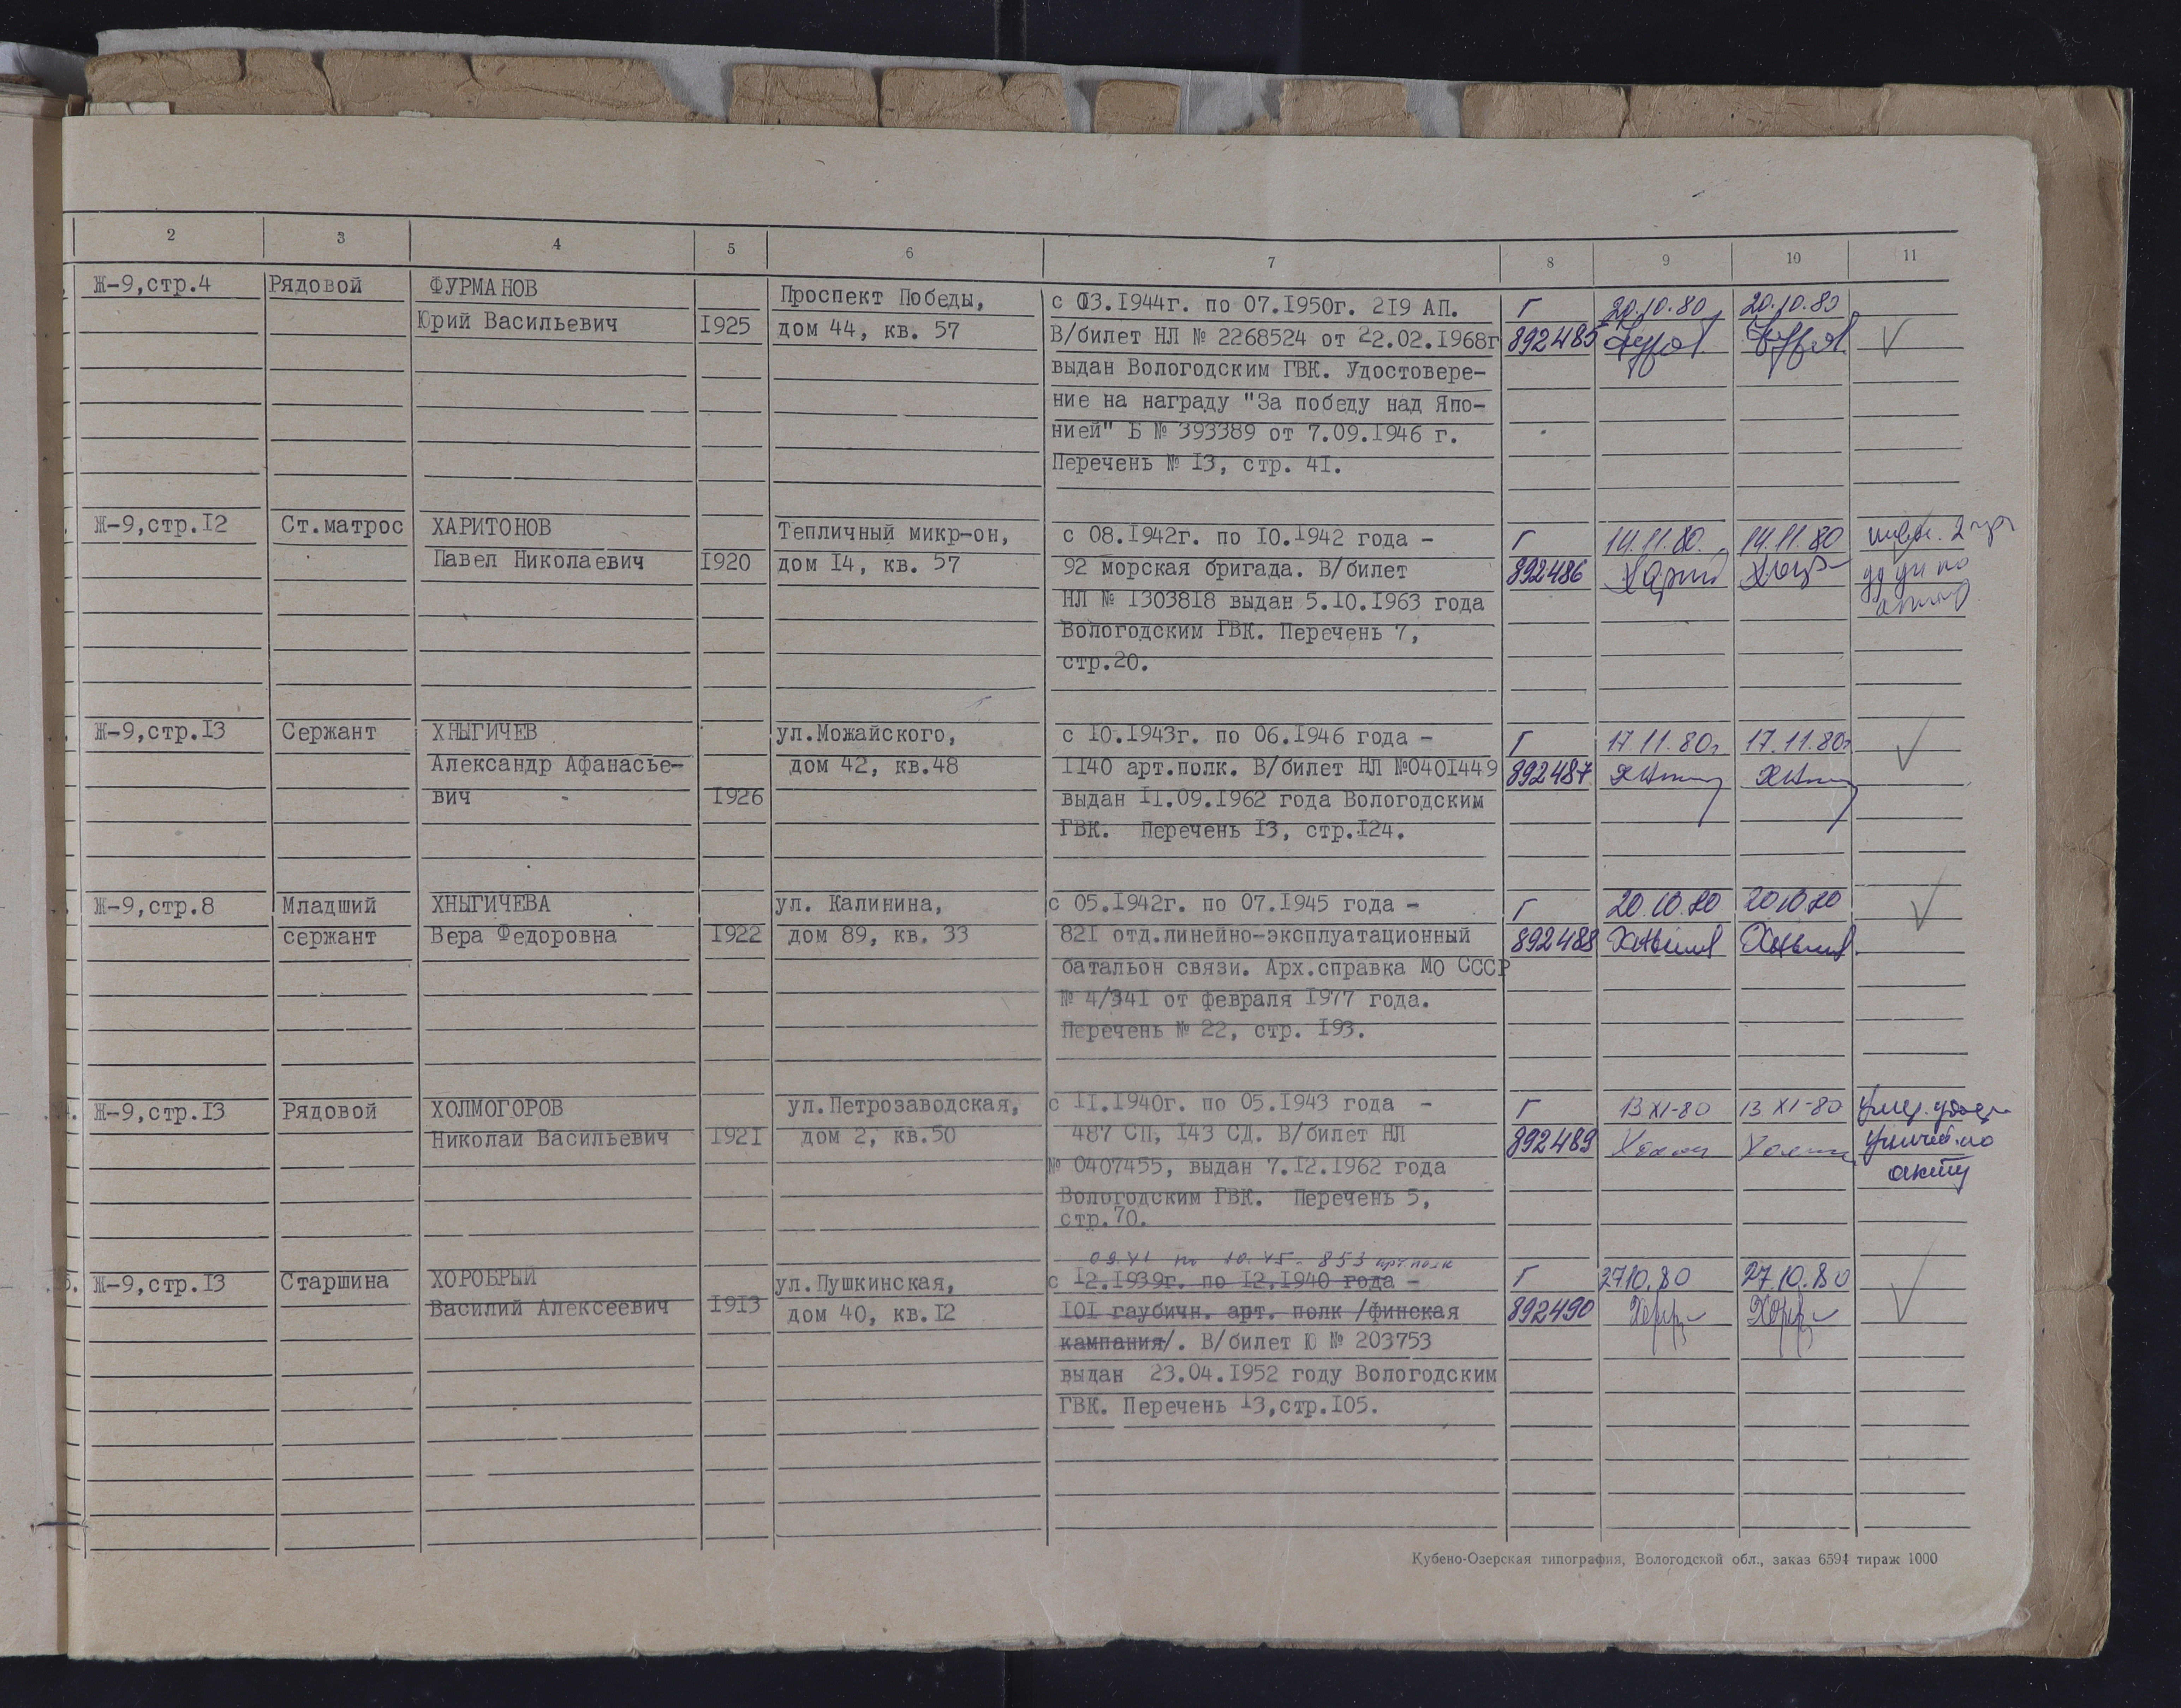 2 3 4 5 6 7 8 9 10 11
Ж-9,стр.4 Рядовой ФУРМАНОВ Проспект Победы, с 03.1944г. по 07.1950г. 219 АП. Г 20.10.80 20.10.80
Юрий Васильевич 1925 дом 44, кв. 57 В/билет НЛ № 2268524 от 22.02.1968г 892485
выдан Вологодским ГВК. Удостовере-
ние на награду "За победу над Япо-
нией" Б № 393389 от 7.09.1946 г.
Перечень № 13, стр. 41.
Ж-9,стр.12 Ст.матрос ХАРИТОНОВ Тепличный микр-он, с 08.1942г. по 10.1942 года - Г 14.11.80. 14.11.80
Павел Николаевич 1920 дом 14, кв. 57 92 морская бригада. В/билет 892486
НЛ № 1303818 выдан 5.10.1963 года
Вологодским ГВК. Перечень 7,
стр.20.
Ж-9,стр.13 Сержант ХНЫГИЧЕВ ул.Можайского, с 10.1943г. по 06.1946 года - Г 17.11.80г 17.11.80г
Александр Афанасье- дом 42, кв.48 1140 арт.полк. В/билет НЛ №0401449 892487
вич 1926 выдан 11.09.1962 года Вологодским
ГВК. Перечень 13, стр.124.
Ж-9,стр.8 Младший ХНЫГИЧЕВА ул. Калинина, с 05.1942г. по 07.1945 года - Г 20.10.80 20.10.80
сержант Вера Федоровна 1922 дом 89, кв. 33 821 отд.линейно-эксплуатационный 892488
батальон связи. Арх.справка МО СССР
№ 4/341 от февраля 1977 года.
Перечень № 22, стр. 193.
Ж-9,стр.13 Рядовой ХОЛМОГОРОВ ул.Петрозаводская, с 11.1940г. по 05.1943 года - Г 13 XI-80 13 XI-80
Николай Васильевич 1921 дом 2, кв.50 487 СП, 143 СД. В/билет НЛ 892489
№ 0407455, выдан 7.12.1962 года акту
Вологодским ГВК. Перечень 5,
стр.70.
09.41 по 10.45. 853 арт.полк
Ж-9,стр.13 Старшина ХОРОБРЫЙ ул.Пушкинская, с 12.1939г. по 12.1940 года - Г 27.10.80 27.10.80
Василий Алексеевич 1913 дом 40, кв.12 101 гаубичн. арт. полк /финская 892490
кампания/. В/билет Ю № 203753
выдан 23.04.1952 году Вологодским
ГВК. Перечень 13,стр.105.
Кубено-Озерская типография, Вологодской обл., заказ 6594 тираж 1000